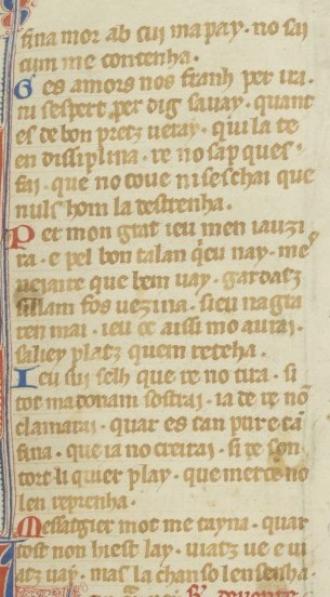 fina mor ab cui mapay · no sai
cum me contenha ·
Ges amors nos franh per ira ·
ni sespert per dig sauay · quant
es de bon pretz ueray · qui la te
en dissiplina · re no sap ques
fai · que no coue ni seschai que
nuls hom la destrenha ·
Per mon grat ieu men iauzi
ra · e pel bon talan qeu nay · me
ueiaire que bem uay · gardatz
sillam fos uezina · sieu nagra
ren mai · ieu oc aissi mo aurai ·
saliey platz quem reteha ·
Ieu sui selh que re no tira · si
tot ma donam sostrai · ia de re no
clamarai · quar es tan pure ta
fina · que ia no creirai · si de son
tort li quier play · que merce no
len reprenha ·
Messatgier mot me tayna · quar
tost non hiest lay · uiatz ue e ui
atz uay · mas la chanso lensenha ·